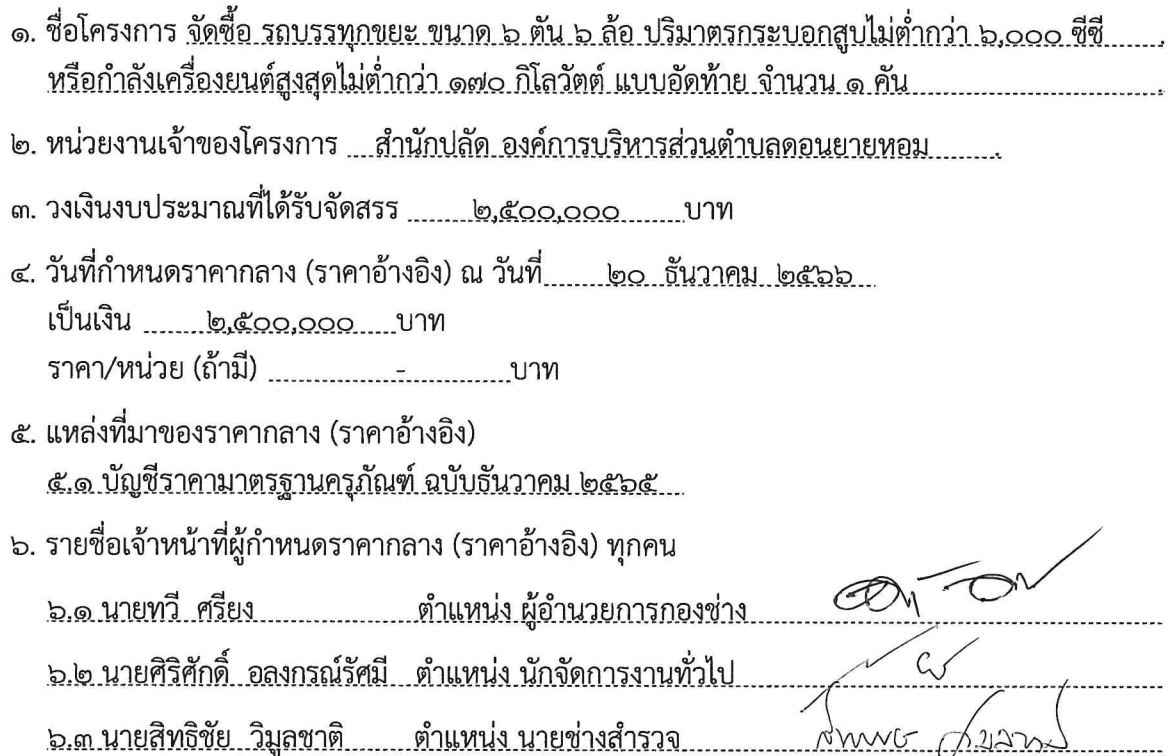 ๑. ชื่อโครงการ จัดซื้อ รถบรรทุกขยะ ขนาด ๖ ตัน ๖ ล้อ ปริมาตรกระบอกสูบไม่ต่ำกว่า ๖,๐๐๐ ซีซี
หรือกำลังเครื่องยนต์สูงสุดไม่ต่ำกว่า ๑๗๐ กิโลวัตต์ แบบอัดท้าย จำนวน ๑ คัน
๒. หน่วยงานเจ้าของโครงการ สำนักปลัด องค์การบริหารส่วนตำบลดอนยายหอม
๓. วงเงินงบประมาณที่ได้รับจัดสรร ๒,๕๐๐,๐๐๐ บาท
๔. วันที่กำหนดราคากลาง (ราคาอ้างอิง) ณ วันที่ ๒๐ ธันวาคม ๒๕๖๖
เป็นเงิน ๒,๕๐๐,๐๐๐ บาท
ราคา/หน่วย (ถ้ามี) - บาท
๕. แหล่งที่มาของราคากลาง (ราคาอ้างอิง)
๕.๑ บัญชีราคามาตรฐานครุภัณฑ์ ฉบับธันวาคม ๒๕๖๕
๖. รายชื่อเจ้าหน้าที่ผู้กำหนดราคากลาง (ราคาอ้างอิง) ทุกคน
๖.๑ นายทวี ศรียง ตำแหน่ง ผู้อำนวยการกองช่าง
๖.๒ นายศิริศักดิ์ อลงกรณ์รัศมี ตำแหน่ง นักจัดการงานทั่วไป
๖.๓ นายสิทธิชัย วิมูลชาติ ตำแหน่ง นายช่างสำรวจ